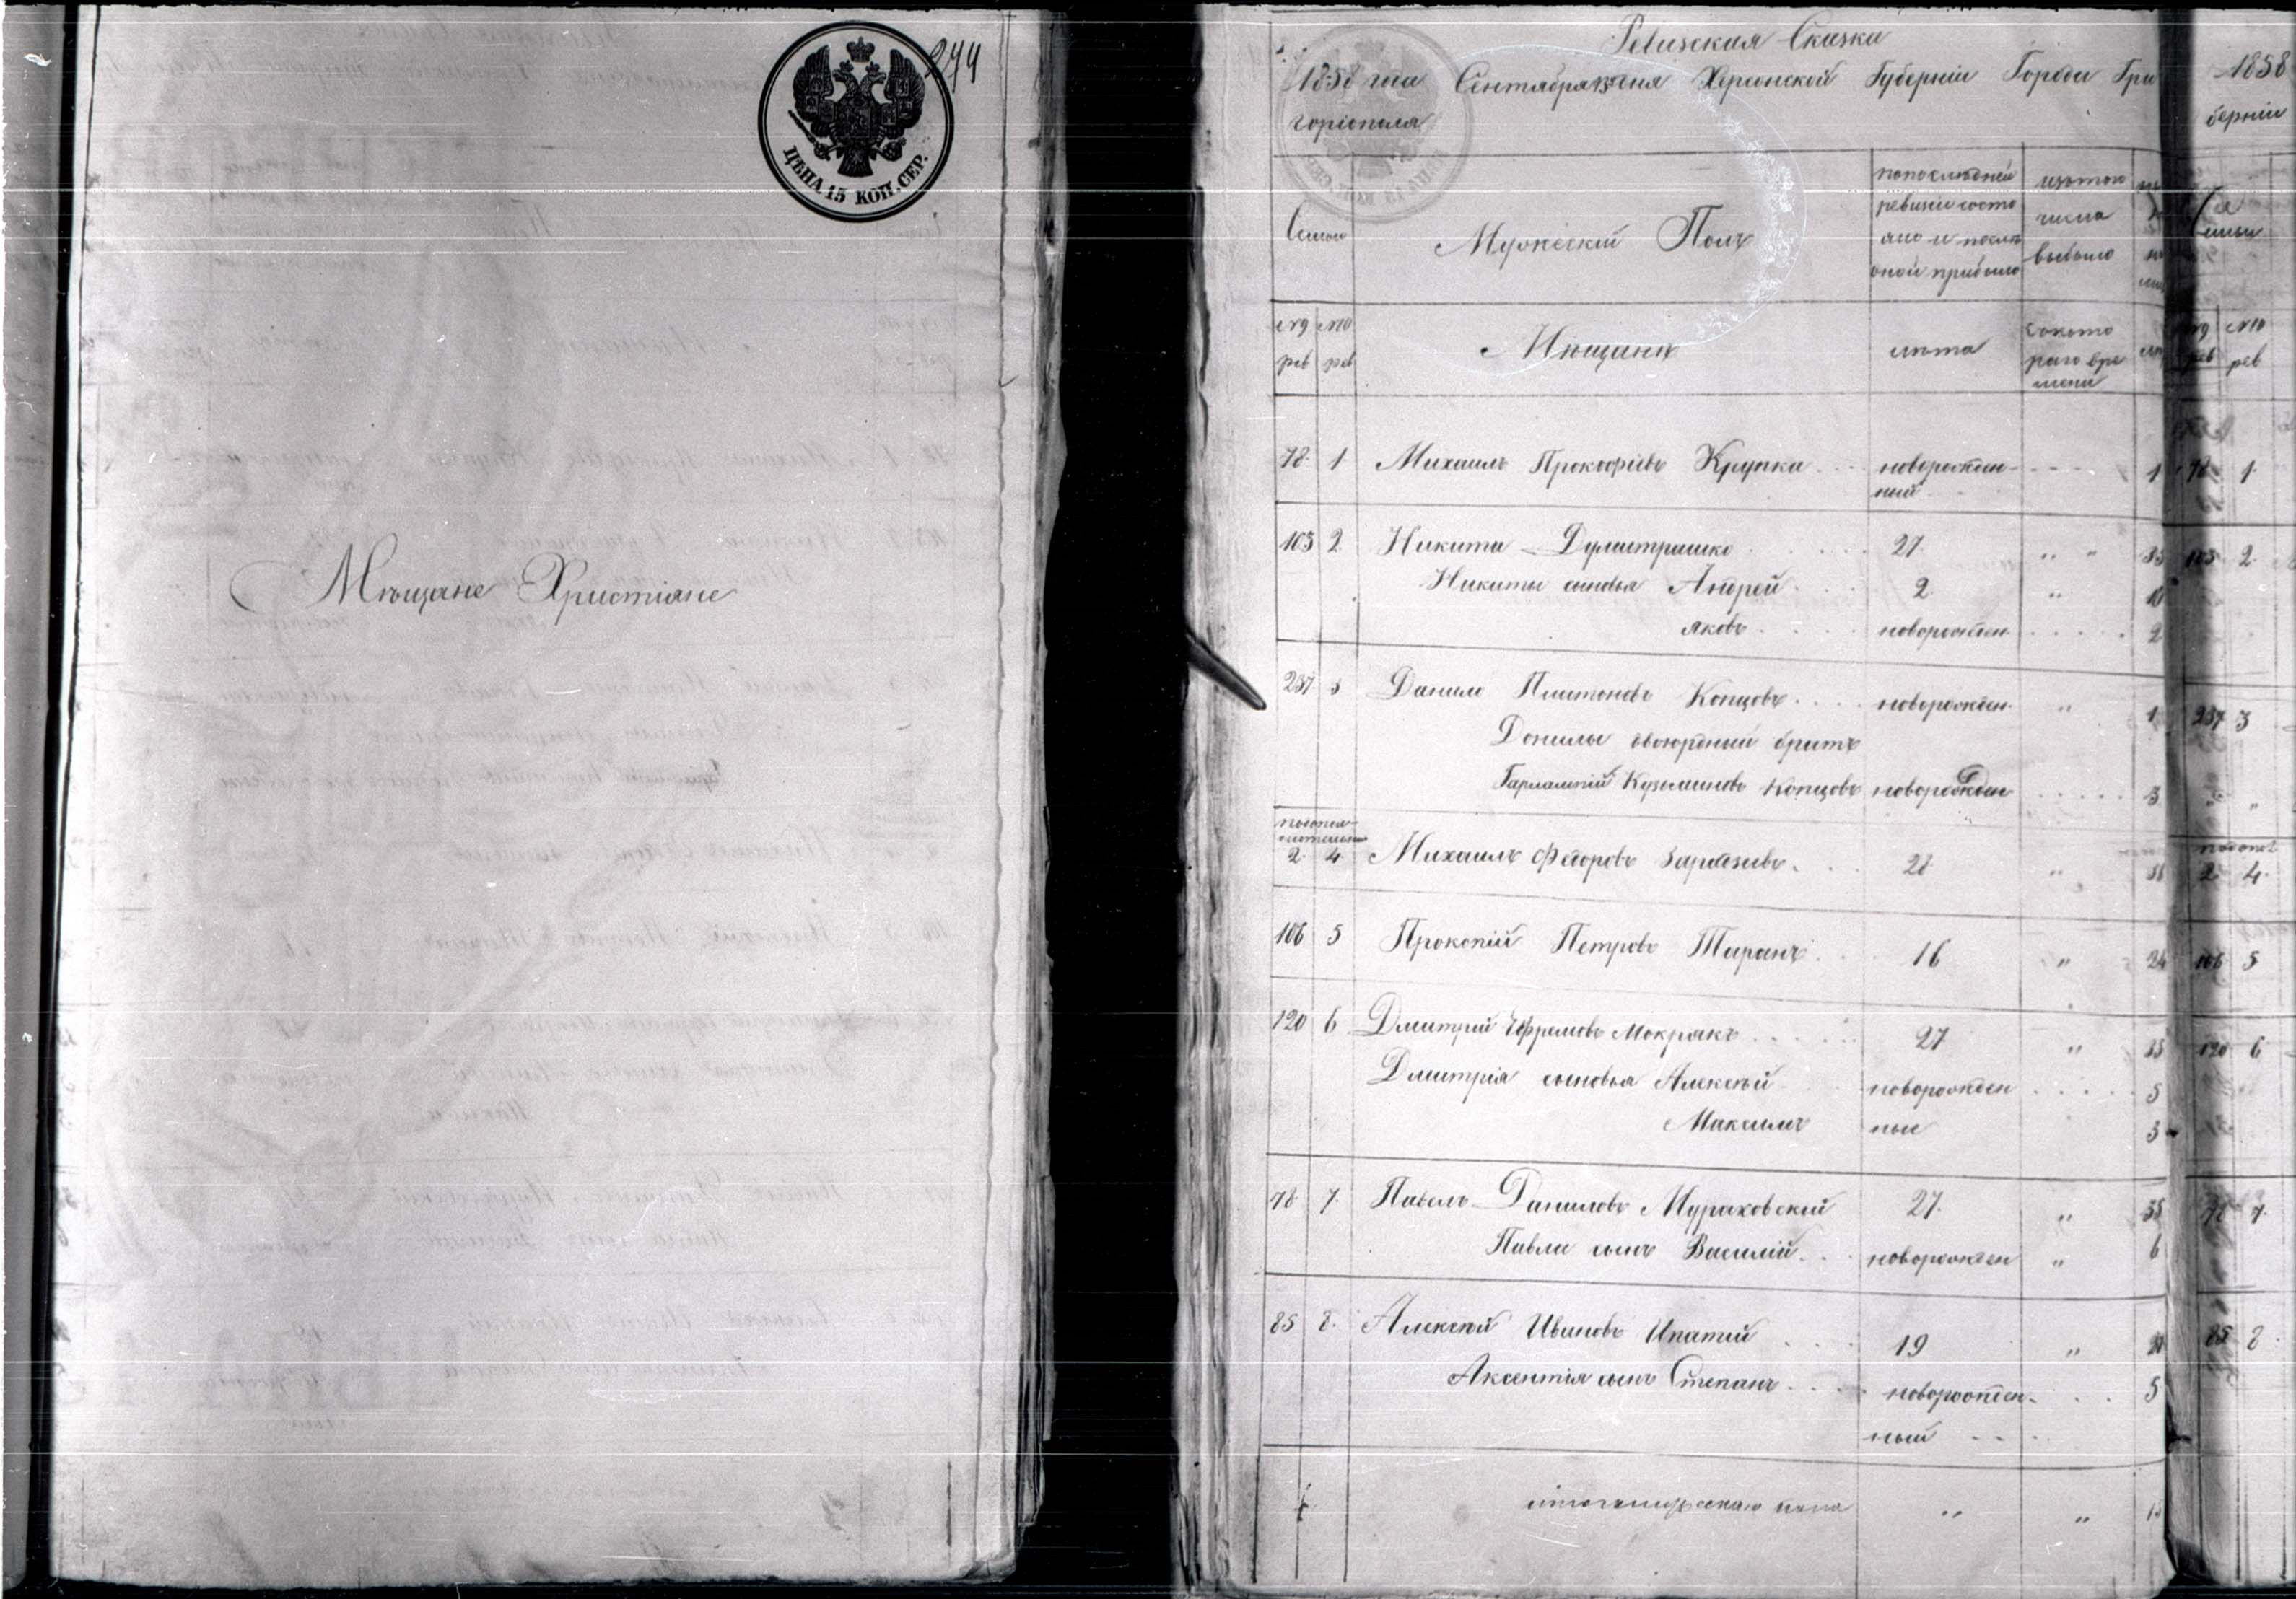 244
ЦѢНА 15 КОП. СЕР.
Мѣщане Христіане
Ревизская Сказка
1858 года Сентября 15 дня Херсонской Губерніи Города Гри
горіополя
Семьи
Мужескій Полъ
попоследней
ревизіи состо
яло и послѣ
оной прибыло
изтого
числа
выбыло
№9 рев
№10 рев
Мѣщане
лѣта
ското
раго вре
мени
78 1 Михаилъ Прокофіевъ Крупка новорожден 1
ный
103 2 Никита Думитрашко 27 " " 35
Никиты сыновья Андрей 2 " 10
Яковъ новорожден 2
237 3 Данило Платоновъ Концовъ новорожден " 1
Данилы двоюродный братъ
Кузьминовъ Концовъ новорожден 3
2 4 Михаилъ Федоровъ 28 " 36
106 5 Прокопій Петровъ Таранъ 16 " 24
120 6 Дмитрій Ефремовъ Мокрякъ 27 " 35
Дмитрія сыновья Алексѣй новорожден 5
Максимъ ные 3
78 7 Павелъ Даниловъ Мураховскій 27 " 35
Павла сынъ Василій новорожден " 6
85 8 Алексѣй Ивановъ Ипатій 19 "
Аксентія сынъ Степанъ новорожден 5
ный
пола " "
1858
берніи
Семьи
№10
рев
рев
78 1
103 2
237 3
"
2 4
106 5
120 6
78 7
85 8